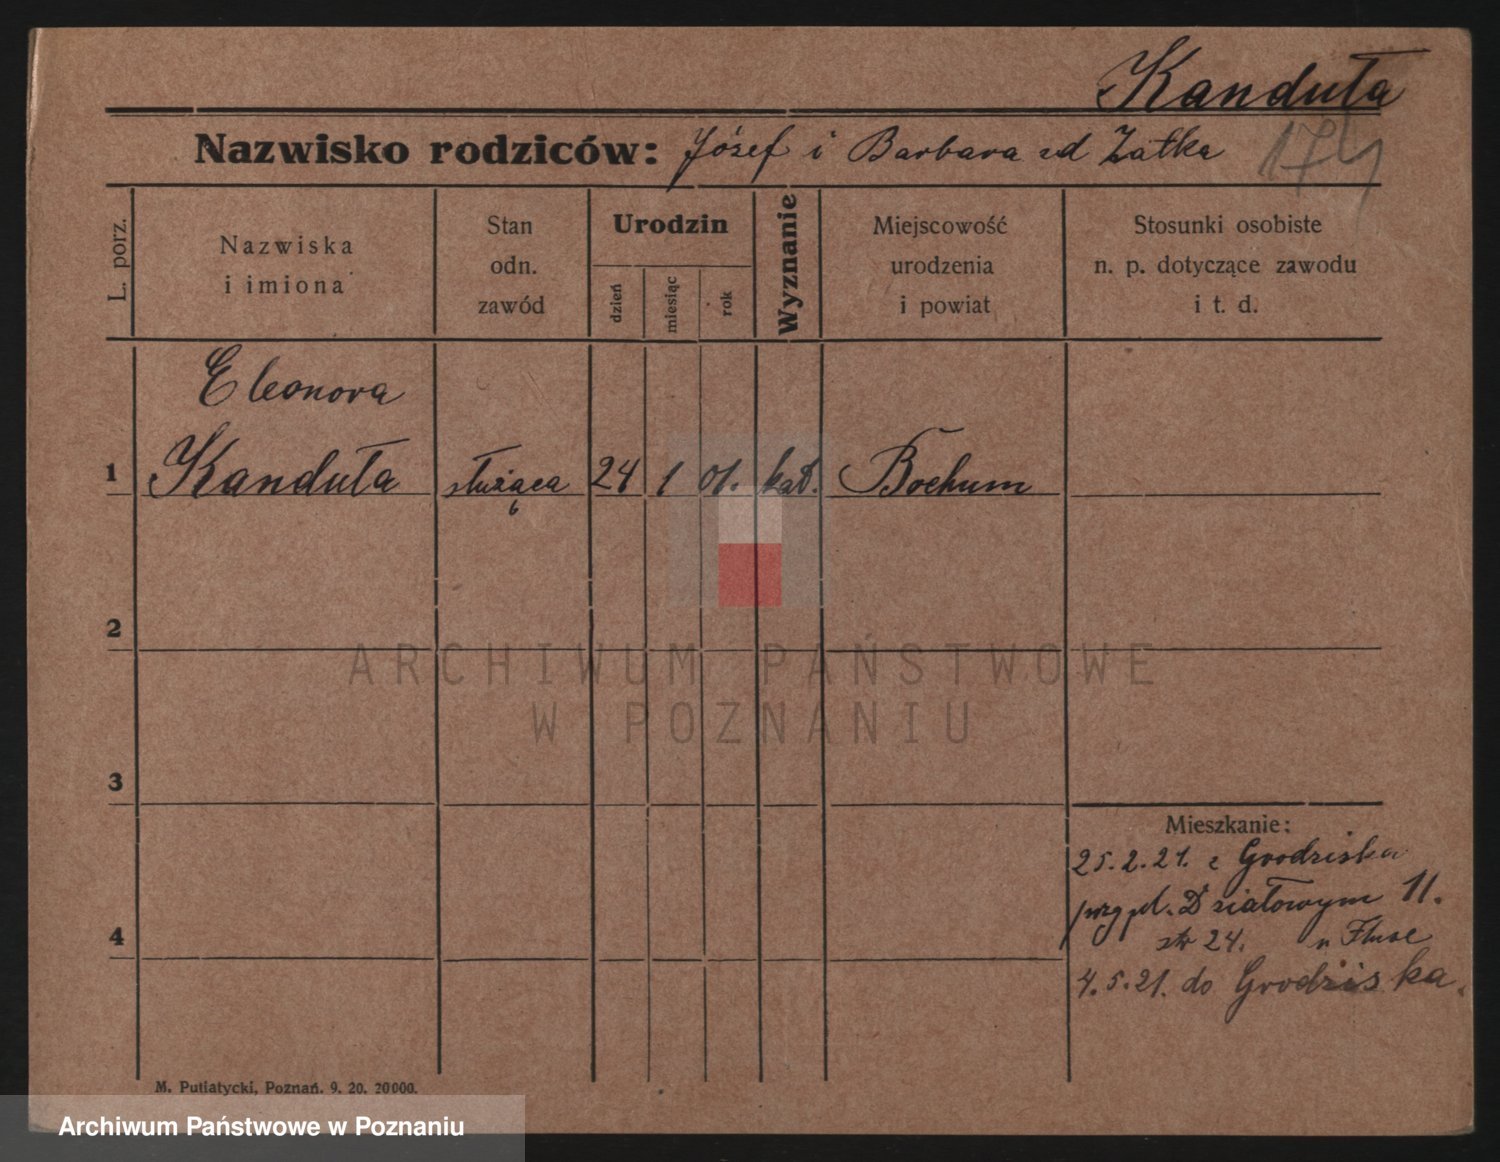 Kanduła
Nazwisko rodziców: Józef i Barbara zd Zatka
174
L. porz.
Nazwiska
i imiona
Stan
odn.
zawód
Urodzin
dzień
miesiąc
rok
Wyznanie
Miejscowość
urodzenia
i powiat
Stosunki osobiste
n. p. dotyczące zawodu
i t. d.
Eleonora
1 Kanduła służąca 24 1 01. kat. Bochum
6
2
3
4
Mieszkanie:
25.2.21. z Grodziska
przy pl. Działowym 11.
24.
4.5.21. do Grodziska.
M. Putiatycki, Poznań. 9. 20. 20000.
ARCHIWUM PAŃSTWOWE
W POZNANIU
Archiwum Państwowe w Poznaniu